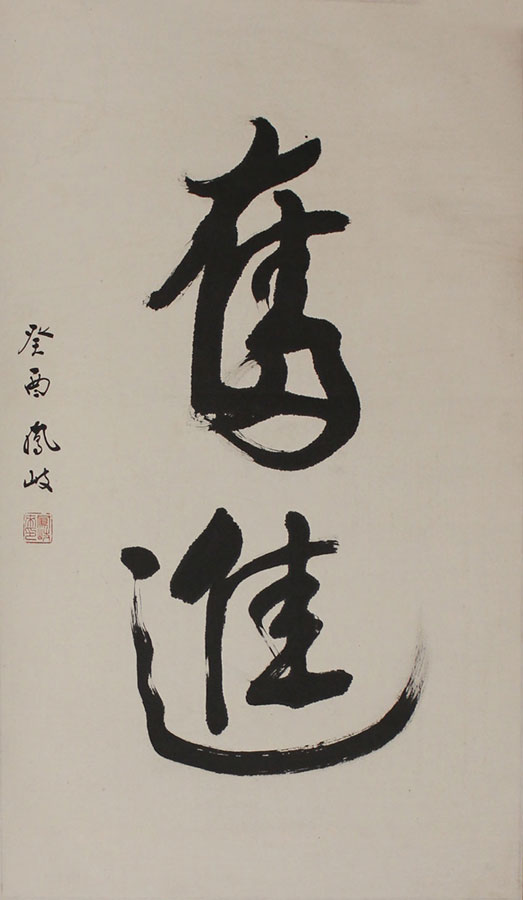 奮進
癸酉 鳳岐